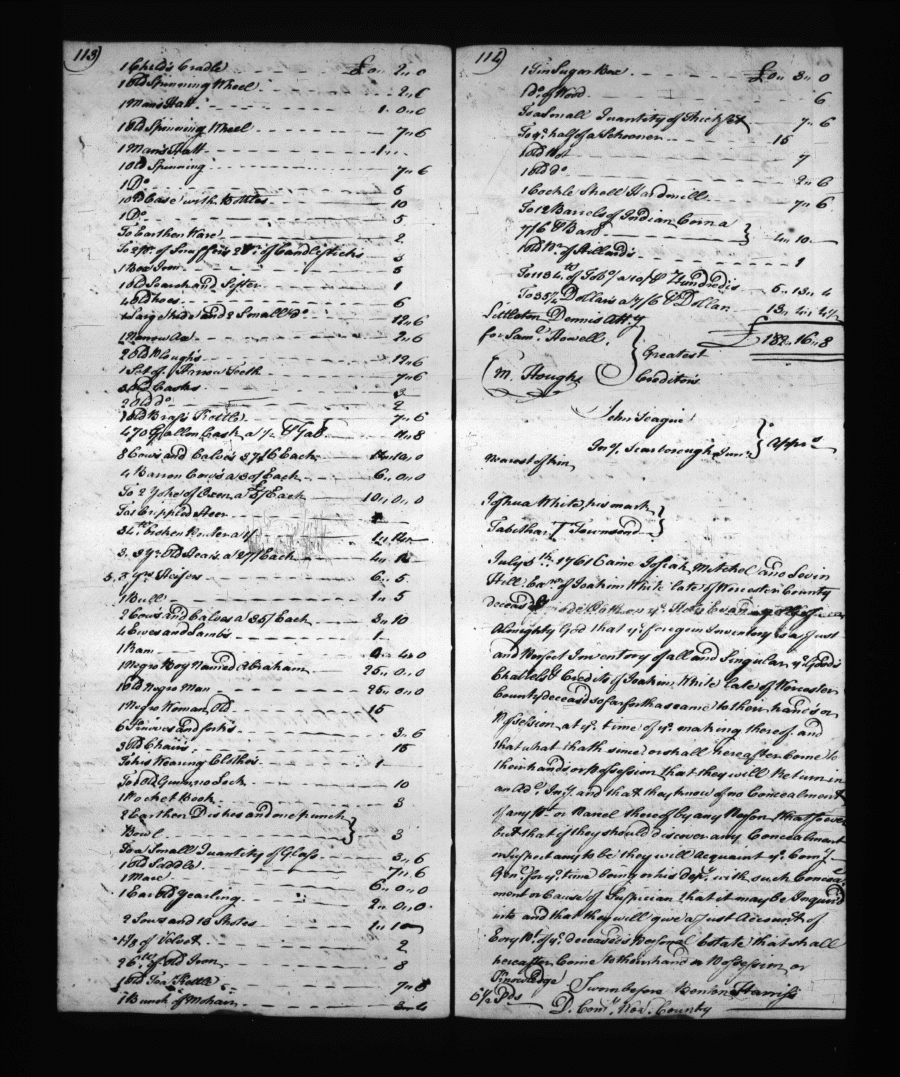 113)
1 Child's Cradle £0 " 2 " 0
1 Old Spinning Wheel 2 " 6
1 Man's Hatt 1 " 0 " 0
1 Old Spinning Wheel 7 " 6
1 Man's Hatt 1 "
1 Old Spinning 7 " 6
1 Do 5
1 Old Case with Bottles 10
1 Do 5
To Earthen Ware 2
To 2 pr. of Snuffers 2 pr. of Candlesticks 3
1 Box Iron 5
1 Old Search and Sifter 1
4 Old hoes 6
1 Large and 2 Small Do 12 " 6
1 Narrow Ax 2 " 6
2 Old Ploughs 12 " 6
1 Set of Harrow Teeth 7 " 6
3 Old Casks 3
2 Old do 2
1 Old Brass Kettle 7 " 6
470 Gallon Cask a /2 Gal 11 " 8
8 Cows and Calves 37/6 Each 10 " 0
4 Barron Cows a 30/ Each 6 " 0 " 0
To 2 Yoke of Oxen a Each 10 " 0 " 0
To 1 Crippled Steer
34 lb broken Pewter a 1/ 1 " 14
3. 3 yr. Old Stears a 27/ Each 4 " 1
5. 2 yr. Heifers 6 " 5
1 Bull 1 " 5
2 Cows and Calves a 35/ Each 3 " 10
4 Ewes and Lambs 1
1 Ram 4 " 0
1 Negro Boy Named Abraham 25 " 0 " 0
1 Old Negro Man 25 " 0 " 0
1 Negro Woman Old 15
6 Knives and forks 3 " 6
3 Old Chairs 15
To his Wearing Cloths 1
To 1 Old Gunn no Lock 10
1 Pocket Book 3
2 Earthen Dishes and one punch
Bowl 3
To a Small Quantity of Glass 3 " 6
1 Old Saddle 7 " 6
1 Mare 6 " 0 " 0
1 Ear old Yearling 2 " 0 " 0
2 Sows and 13 Shotes 1 " 10
1/8 of Velvet 2
26 lb of Old Iron 8
1 Old Tea Kettle 7 " 6
1 Bunch of Mohair
114)
1 Tin Sugar Box £0 " 3 " 0
1 Do. of Wood 6
To a Small Quantity of Thick Set 7 " 6
To ye. half of a Schooner 15
1 Old Pot 7
1 Old do 2 " 6
1 Cockle Shell Handmill 7 " 6
To 12 Barrels of Indian Corn a
7/6 Barl 4 " 10
1 Old Pr. of Stilliards 1
To 1134 lb of Tobo. a 10/ Hundred 5 " 13 " 4
To 35 1/4 Dollars a 7/6 Dollar 13 " 4 " 4 1/2
Littleton Dennis Atty. £182 " 16 " 8
for Saml. Howell. Greatest
Wm. Hough Creditors
John Teague
Jny. Scarborough Junr. Apprs
Nearest of kin
Joshua White, his mark
Tabitha T Townsend
July 8th. 1761 Came Josiah Mitchel and Levin
Hill Exrs of Joakim White late of Worcester County
deceased and made Oath on ye. Holy Evangels of
Almighty God that ye. foregoin Inventory is a Just
and Perfect Inventory of all and Singular ye. Goods
Chattels & Credits of Joakim White late of Worcester
County deceasd so far forth as came to their hands or
Possession at ye. time of ye. making thereof and
that what hath since or shall hereafter Come to
their hands or Possession that they will Return in
an Adl. Iny. and that they know of no Concealment
of any Pt. or Parcel thereof by any Person Whatsoever
but that if they should discover any Concealment
or Suspect any to be they will Acquaint ye. Comy.
Genl. for ye. time being or his depy. with such Conceal-
ment or Cause of Suspician that it may be Inquired
into and that they will give a Just Account of
Every Pt. of ye. deceaseds Personal Estate that shall
hereafter Come to their hand or Possession or
Knowledge
Sworn before Benton Harris
6 1/2 Pds
D. Comy. Wor. County